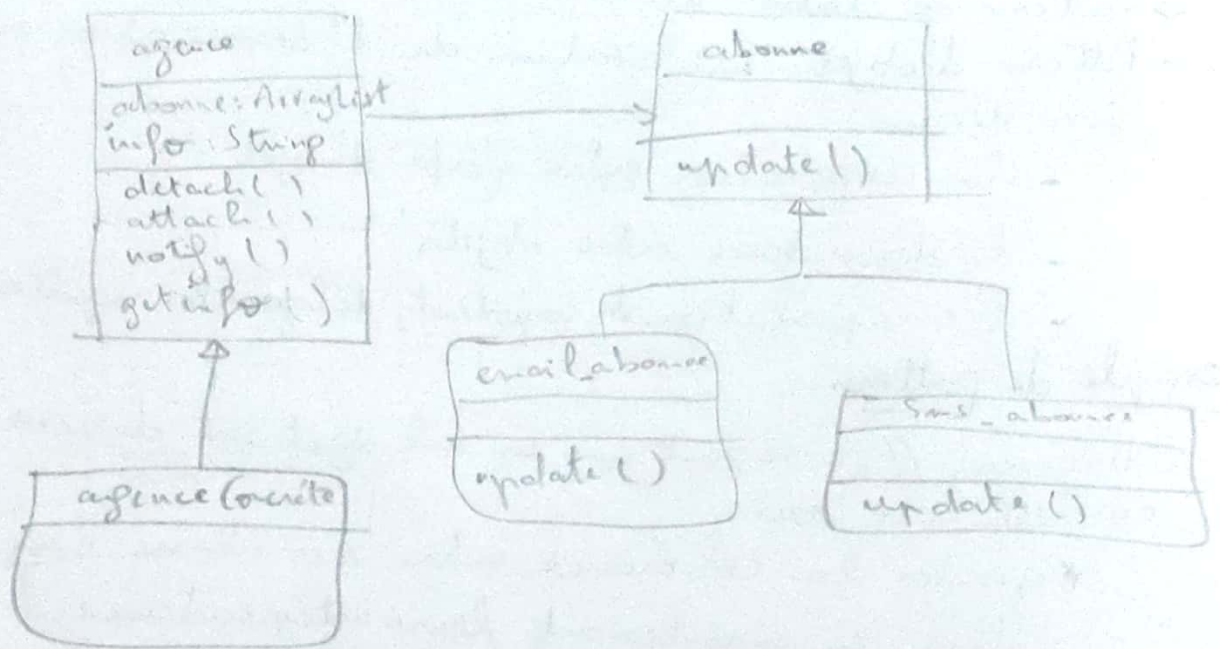 agence
abonne: ArrayList
info: String
detach()
attach()
notify()
getinfo()
abonne
update()
email_abonnee
update()
Sms_abonnee
update()
agence Concrète